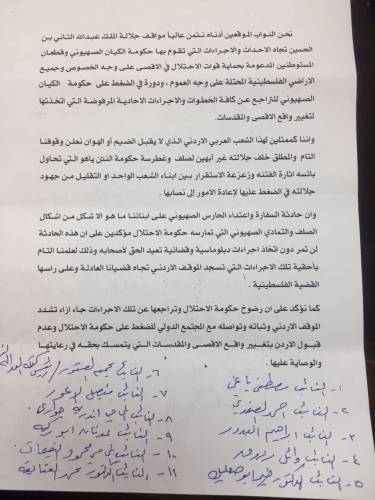 نحن النواب الموقعين أدناه نثمن عاليا مواقف جلالة الملك عبدالله الثاني بن
الحسين تجاه الاحداث والاجراءات التي تقوم بها حكومة الكيان الصهيوني وقطعان
المستوطنين المدعومة بحماية قوات الاحتلال في الاقصى على وجه الخصوص وجميع
الاراضي الفلسطينية المحتلة على وجه العموم ، ودورة في الضغط على حكومة الكيان
الصهيوني للتراجع عن كافة الخطوات والاجراءات الاحادية المرفوضة التي اتخذتها
لتغيير واقع الاقصى والمقدسات.
واننا كممثلين لهذا الشعب العربي الاردني الذي لا يقبل الضيم أو الهوان نعلن وقوفنا
التام والمطلق خلف جلالته غير آبهين لصلف وغطرسة حكومة النتن ياهو التي تحاول
بائسه اثارة الفتنه وزعزعة الاستقرار بين ابناء الشعب الواحد او التقليل من جهود
جلالته في الضغط عليها لإعادة الامور إلى نصابها .
وان حادثة السفارة واعتداء الحارس الصهيوني على ابنائنا ما هو الا شكل من اشكال
الصلف والتمادي الصهيوني التي تمارسه حكومة الاحتلال مؤكدين على ان هذه الحادثة
لن تمر دون اتخاذ اجراءات دبلوماسية وقضائية تعيد الحق لأصحابه وذلك لعلمنا التام
بأحقية تلك الاجراءات التي تسجد الموقف الاردني تجاه قضيانا العادلة وعلى راسها
القضية الفلسطينية .
كما نؤكد على ان رضوخ حكومة الاحتلال وتراجعها عن تلك الاجراءات جاء ازاء تشدد
الموقف الاردني وثباته وتواصله مع المجتمع الدولي للضغط على حكومة الاحتلال وعدم
قبول الاردن بتغيير واقع الاقصى والمقدسات التي يتمسك بحقه في رعايتها
والوصاية عليها .
١- النائب مصطفى ياغي
٢- النائب احمد الصفدي
٣- النائب ابراهيم البدور
٤- النائب وائل رزوق
٥- النائب الدكتور ابو صعيليك
٦- النائب
٧- النائب فيصل الاعور
٨- النائب اندريه حواري
٩- النائب عدنان ابو ركبة
١٠- النائب محمود
١١- النائب الدكتور محمد العتايقة